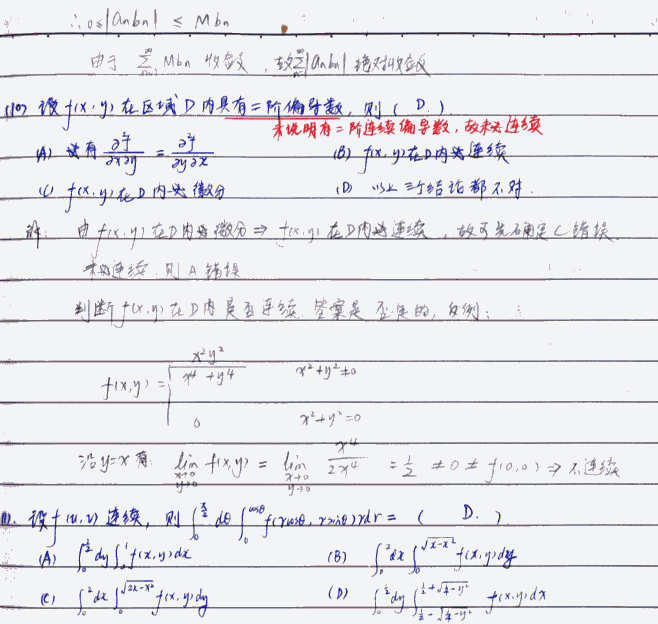 ∴ 0≤|anbn| ≤ Mbn
由于 ∑Mbn 收敛, 故∑|anbn| 绝对收敛
(10) 设 f(x,y) 在区域 D 内具有二阶偏导数, 则 ( D. )
未说明有二阶连续偏导数, 故未必连续
(A) 必有 ∂²f/∂x∂y = ∂²f/∂y∂x (B) f(x,y)在D内必连续
(C) f(x,y)在D内必微分 (D) 以上三个结论都不对.
解: 由 f(x,y) 在D内必微分 ⇒ f(x,y) 在D内必连续, 故可先确定 C 错误.
未必连续, 则 A 错误
判断 f(x,y) 在D内是否连续, 答案是否定的, 反例:
f(x,y) = { x²y²/(x⁴+y⁴) x²+y²≠0
0 x²+y²=0
沿y=x 有: lim(x→0, y→0) f(x,y) = lim(x→0, y→0) x⁴/2x⁴ = 1/2 ≠ 0 ≠ f(0,0) ⇒ 不连续
11. 设f(u,v) 连续, 则 ∫₀^(π/2) dθ ∫₀^(cosθ) f(rcosθ, rsinθ) r dr = ( D. )
(A) ∫₀^(1/2) dy ∫₀^1 f(x,y) dx (B) ∫₀^2 dx ∫₀^√(x-x²) f(x,y) dy
(C) ∫₀^2 dx ∫₀^√(2x-x²) f(x,y) dy (D) ∫₀^(1/2) dy ∫_(1/2-√(1/4-y²))^(1/2+√(1/4-y²)) f(x,y) dx